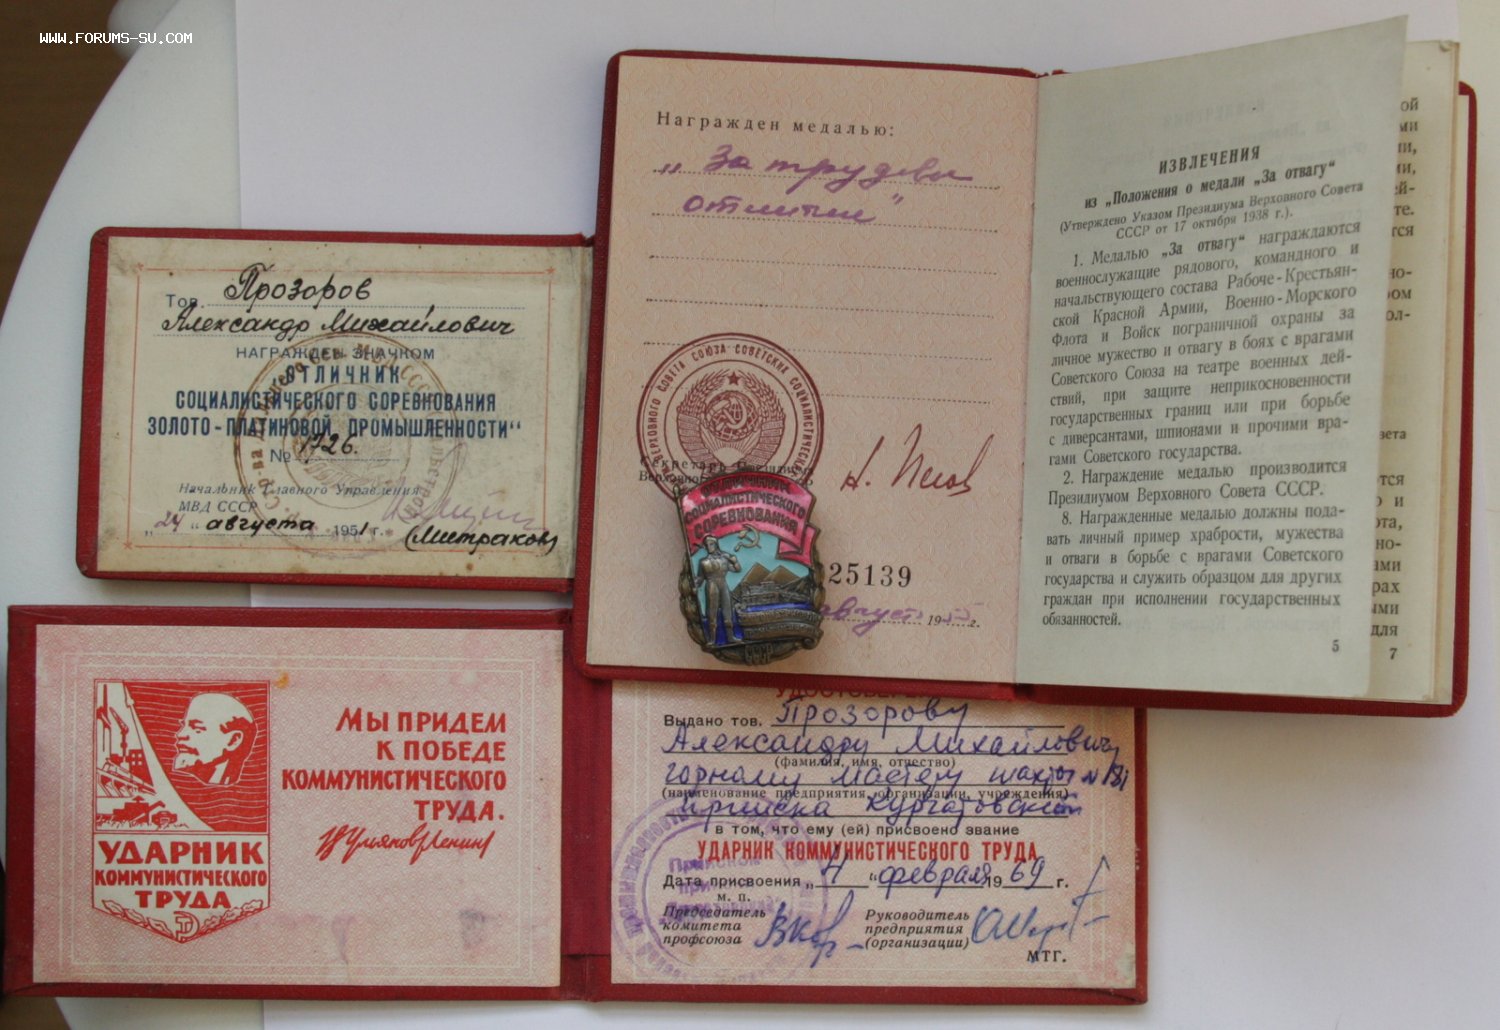 WWW.FORUMS-SU.COM
Награжден медалью:
„За трудовые
отличия"
ВЕРХОВНОГО СОВЕТА СОЮЗА СОВЕТСКИХ СОЦИАЛИСТИЧЕСКИХ
Секретарь Президиума
25139
августа 195 г.
ИЗВЛЕЧЕНИЯ
из „Положения о медали „За отвагу"
(Утверждено Указом Президиума Верховного Совета
СССР от 17 октября 1938 г.).
1. Медалью „За отвагу" награждаются
военнослужащие рядового, командного и
начальствующего состава Рабоче-Крестьян-
ской Красной Армии, Военно-Морского
Флота и Войск пограничной охраны за
личное мужество и отвагу в боях с врагами
Советского Союза на театре военных дей-
ствий, при защите неприкосновенности
государственных границ или при борьбе
с диверсантами, шпионами и прочими вра-
гами Советского государства.
2. Награждение медалью производится
Президиумом Верховного Совета СССР.
8. Награжденные медалью должны пода-
вать личный пример храбрости, мужества
и отваги в борьбе с врагами Советского
государства и служить образцом для других
граждан при исполнении государственных
обязанностей.
5
7
Тов. Прозоров
Александр Михайлович
НАГРАЖДЕН ЗНАЧКОМ
ОТЛИЧНИК
СОЦИАЛИСТИЧЕСКОГО СОРЕВНОВАНИЯ
ЗОЛОТО-ПЛАТИНОВОЙ ПРОМЫШЛЕННОСТИ"
№ 1726.
Начальник Главного Управления
МВД СССР
„24" августа 1951 г.
(Митраков)
ОТЛИЧНИК
СОЦИАЛИСТИЧЕСКОГО
СОРЕВНОВАНИЯ
СССР
МЫ ПРИДЕМ
К ПОБЕДЕ
КОММУНИСТИЧЕСКОГО
ТРУДА.
В Ульянов (Ленин)
УДАРНИК
КОММУНИСТИЧЕСКОГО
ТРУДА
Выдано тов. Прозорову
Александру Михайловичу
(фамилия, имя, отчество)
горному мастеру шахты №
(наименование предприятия, организации, учреждения)
прииска
в том, что ему (ей) присвоено звание
УДАРНИК КОММУНИСТИЧЕСКОГО ТРУДА
Дата присвоения „4" февраля 1969 г.
м. п.
Председатель
комитета
профсоюза
Руководитель
предприятия
(организации)
МТГ.